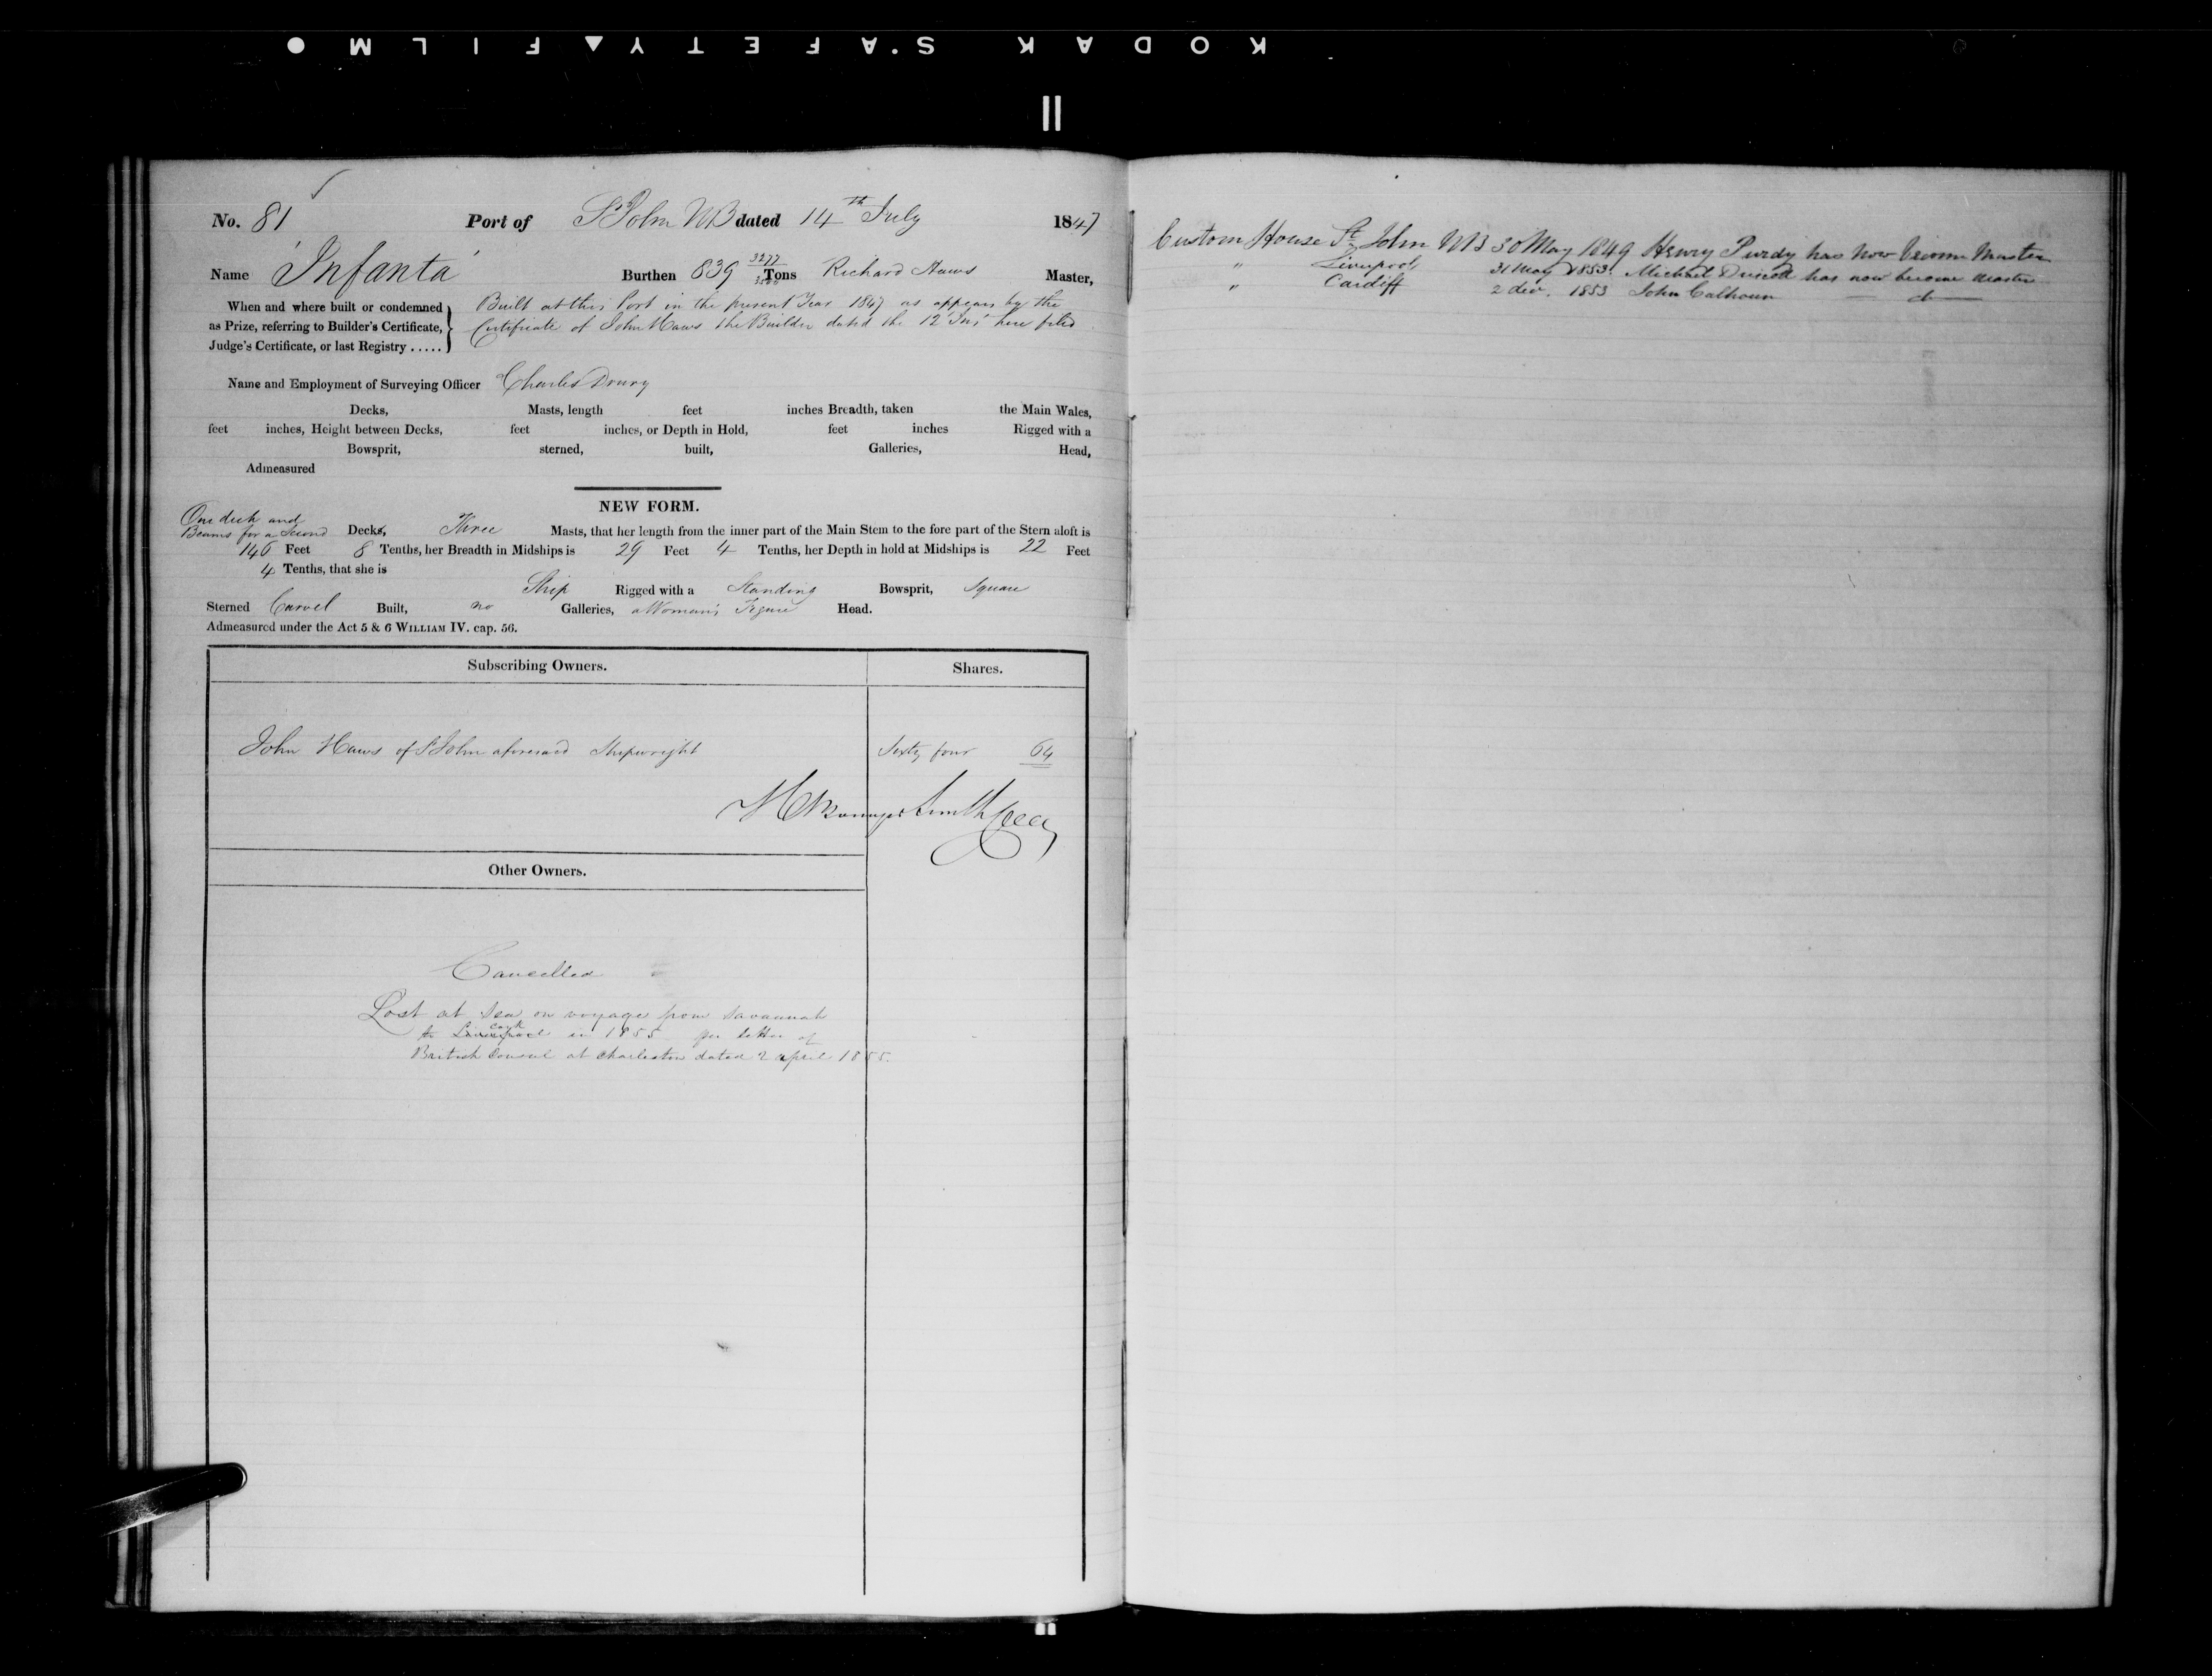 KODAK S'AFETY▲FILM●
II
No. 81 Port of St John NB dated 14th July 1847
Name 'Infanta' Burthen 839 3277/3500 Tons Richard Haws Master,
When and where built or condemned
as Prize, referring to Builder's Certificate,
Judge's Certificate, or last Registry .....
Built at this Port in the present Year 1847 as appears by the
Certificate of John Haws the Builder dated the 12 Inst here filed
Name and Employment of Surveying Officer Charles Drury
Decks, Masts, length feet inches Breadth, taken the Main Wales,
feet inches, Height between Decks, feet inches, or Depth in Hold, feet inches Rigged with a
Bowsprit, sterned, built, Galleries, Head,
Admeasured
NEW FORM.
One deck and
Beams for a Second Decks, Three Masts, that her length from the inner part of the Main Stem to the fore part of the Stern aloft is
146 Feet 8 Tenths, her Breadth in Midships is 29 Feet 4 Tenths, her Depth in hold at Midships is 22 Feet
4 Tenths, that she is
Ship Rigged with a Standing Bowsprit, Square
Sterned Carvel Built, no Galleries, a Woman's Figure Head.
Admeasured under the Act 5 & 6 WILLIAM IV. cap. 56.
Subscribing Owners. Shares.
John Haws of St John aforesaid Shipwright Sixty four 64
Smith
Other Owners.
Cancelled
Lost at Sea on voyage from Savannah
to Liverpool Cork in 1855 per letter of
British Consul at Charleston dated 2 april 1855.
Custom House St John NB 30 May 1849 Henry Purdy has now become Master
" Liverpool 31 May 1853. Michael Driscoll has now become Master
" Cardiff 2 decr. 1853 John Calhoun — do —